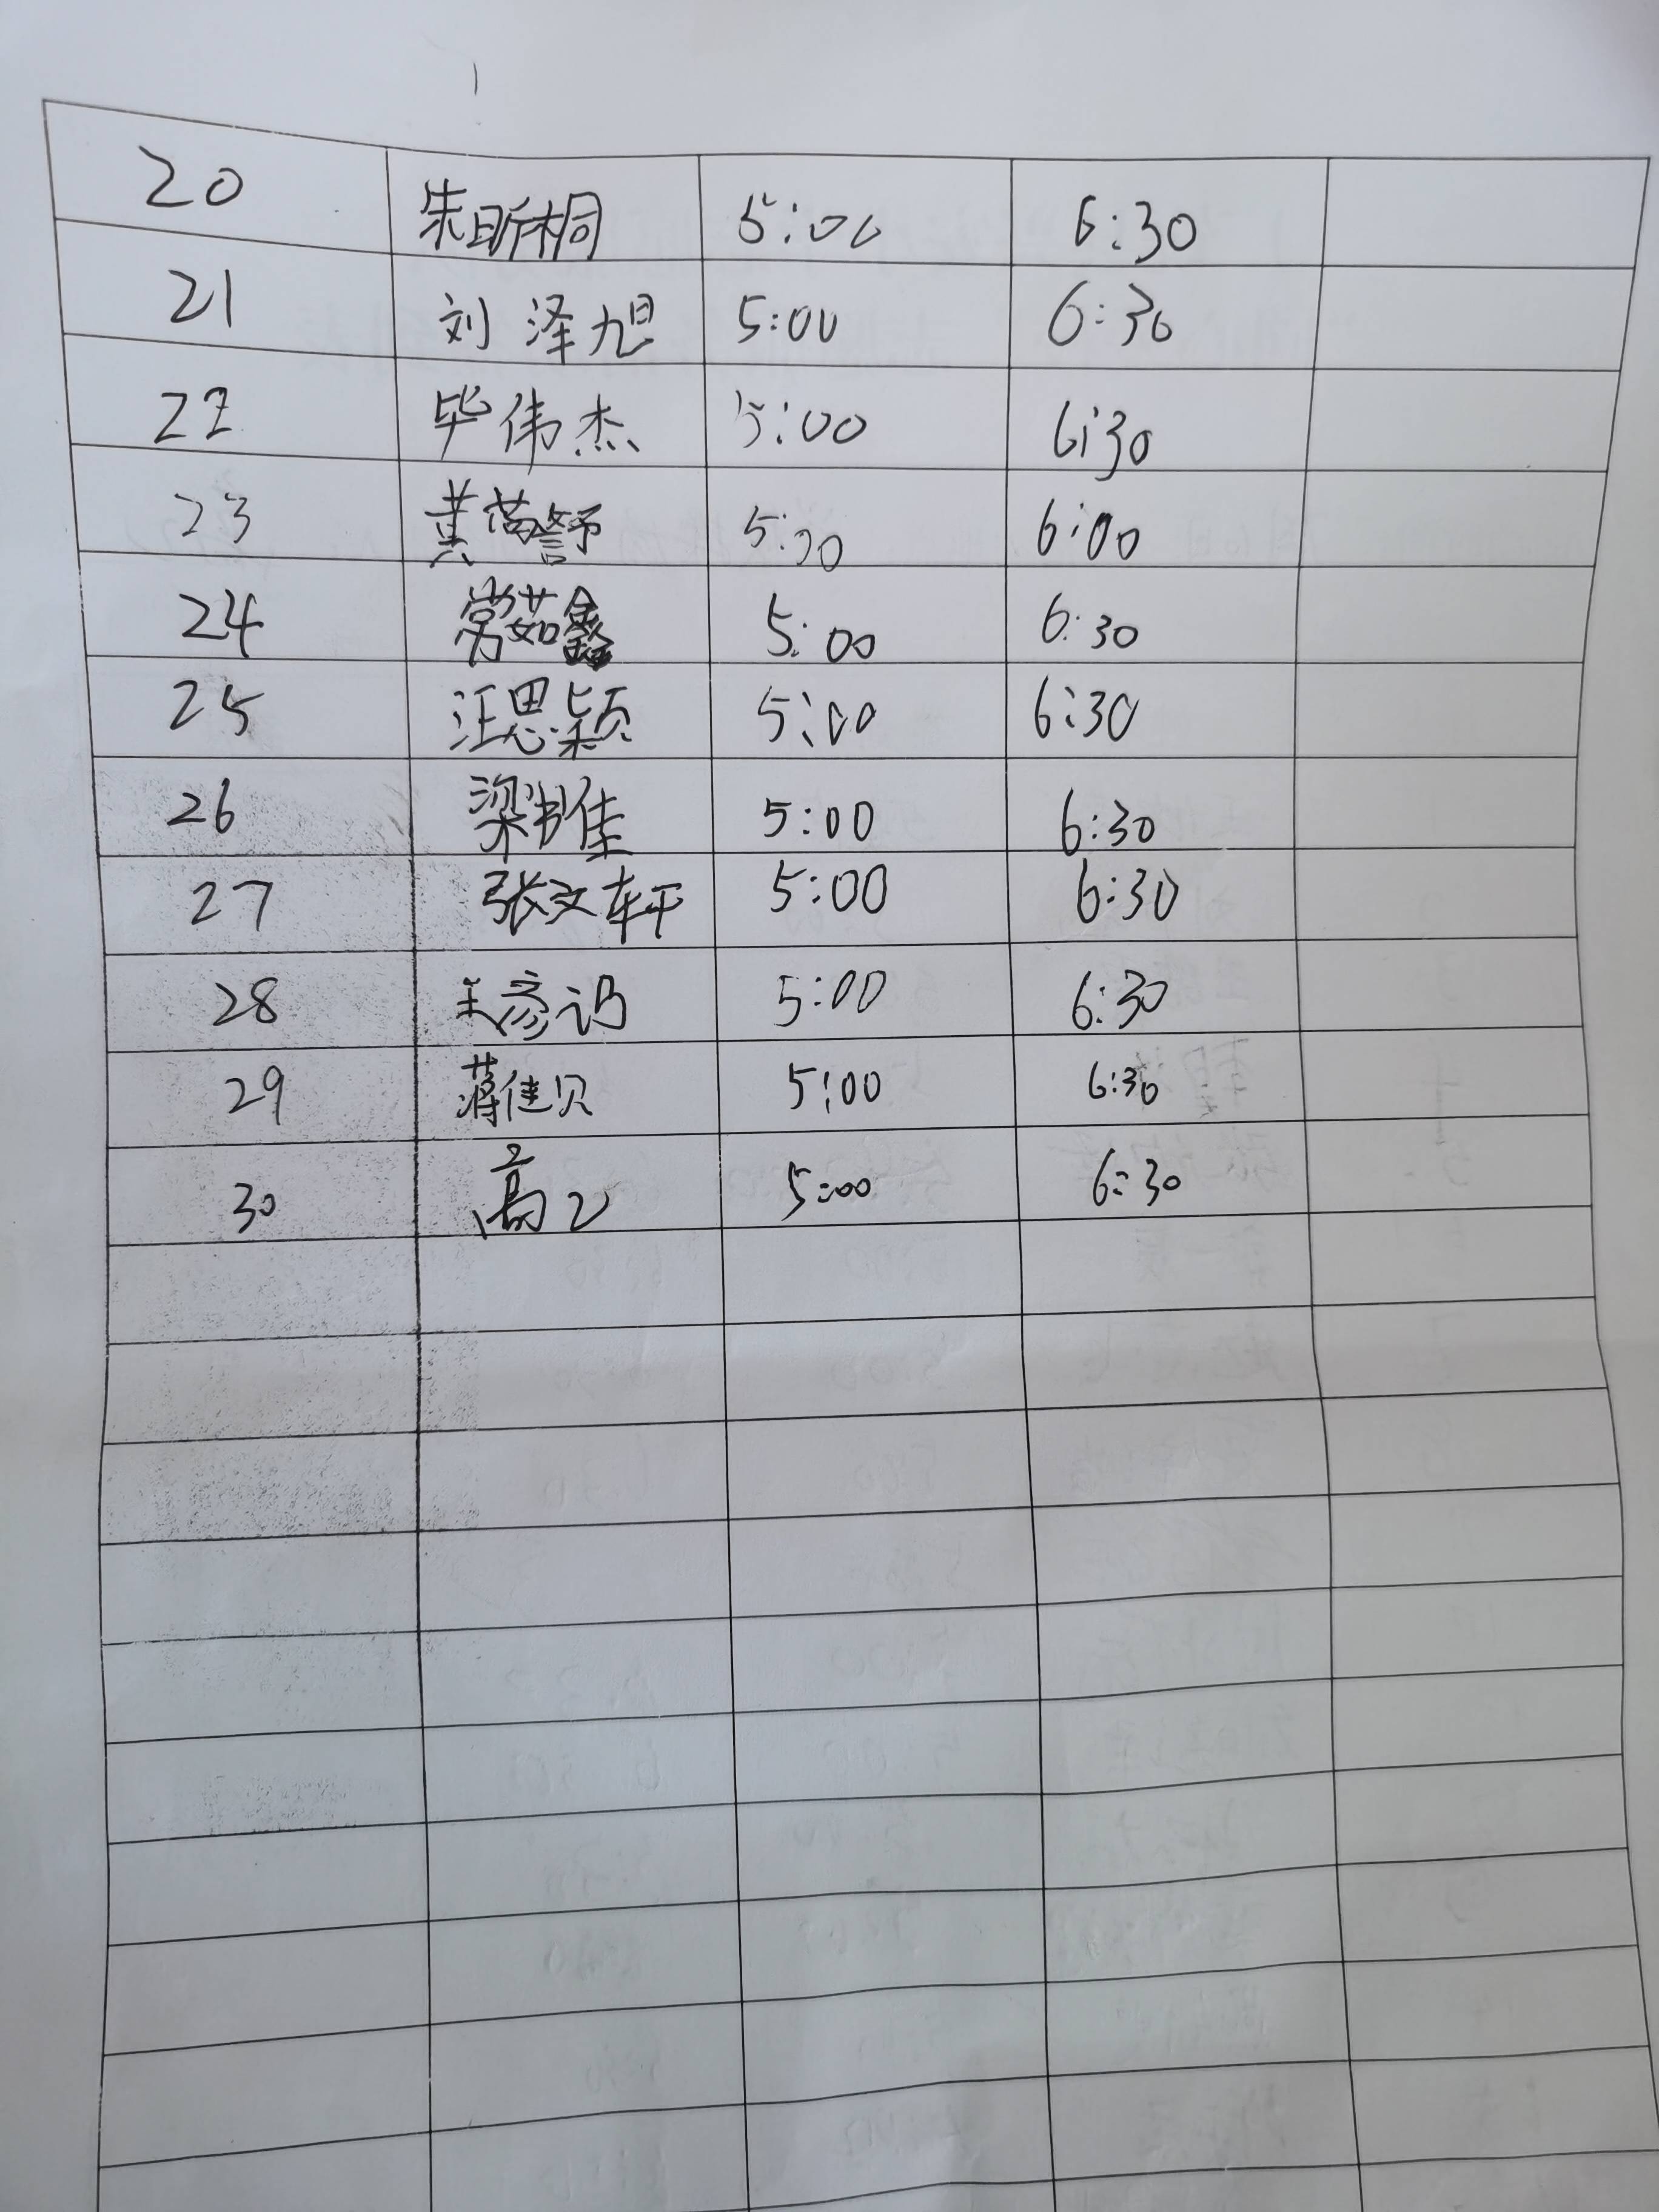 20 朱昕桐 5:00 6:30
21 刘泽旭 5:00 6:30
22 毕伟杰 5:00 6:30
23 黄 5:00 6:00
24 常茹鑫 5:00 6:30
25 汪思颖 5:00 6:30
26 梁书佳 5:00 6:30
27 张文轩 5:00 6:30
28 王彦 5:00 6:30
29 蒋佳贝 5:00 6:30
30 高 5:00 6:30